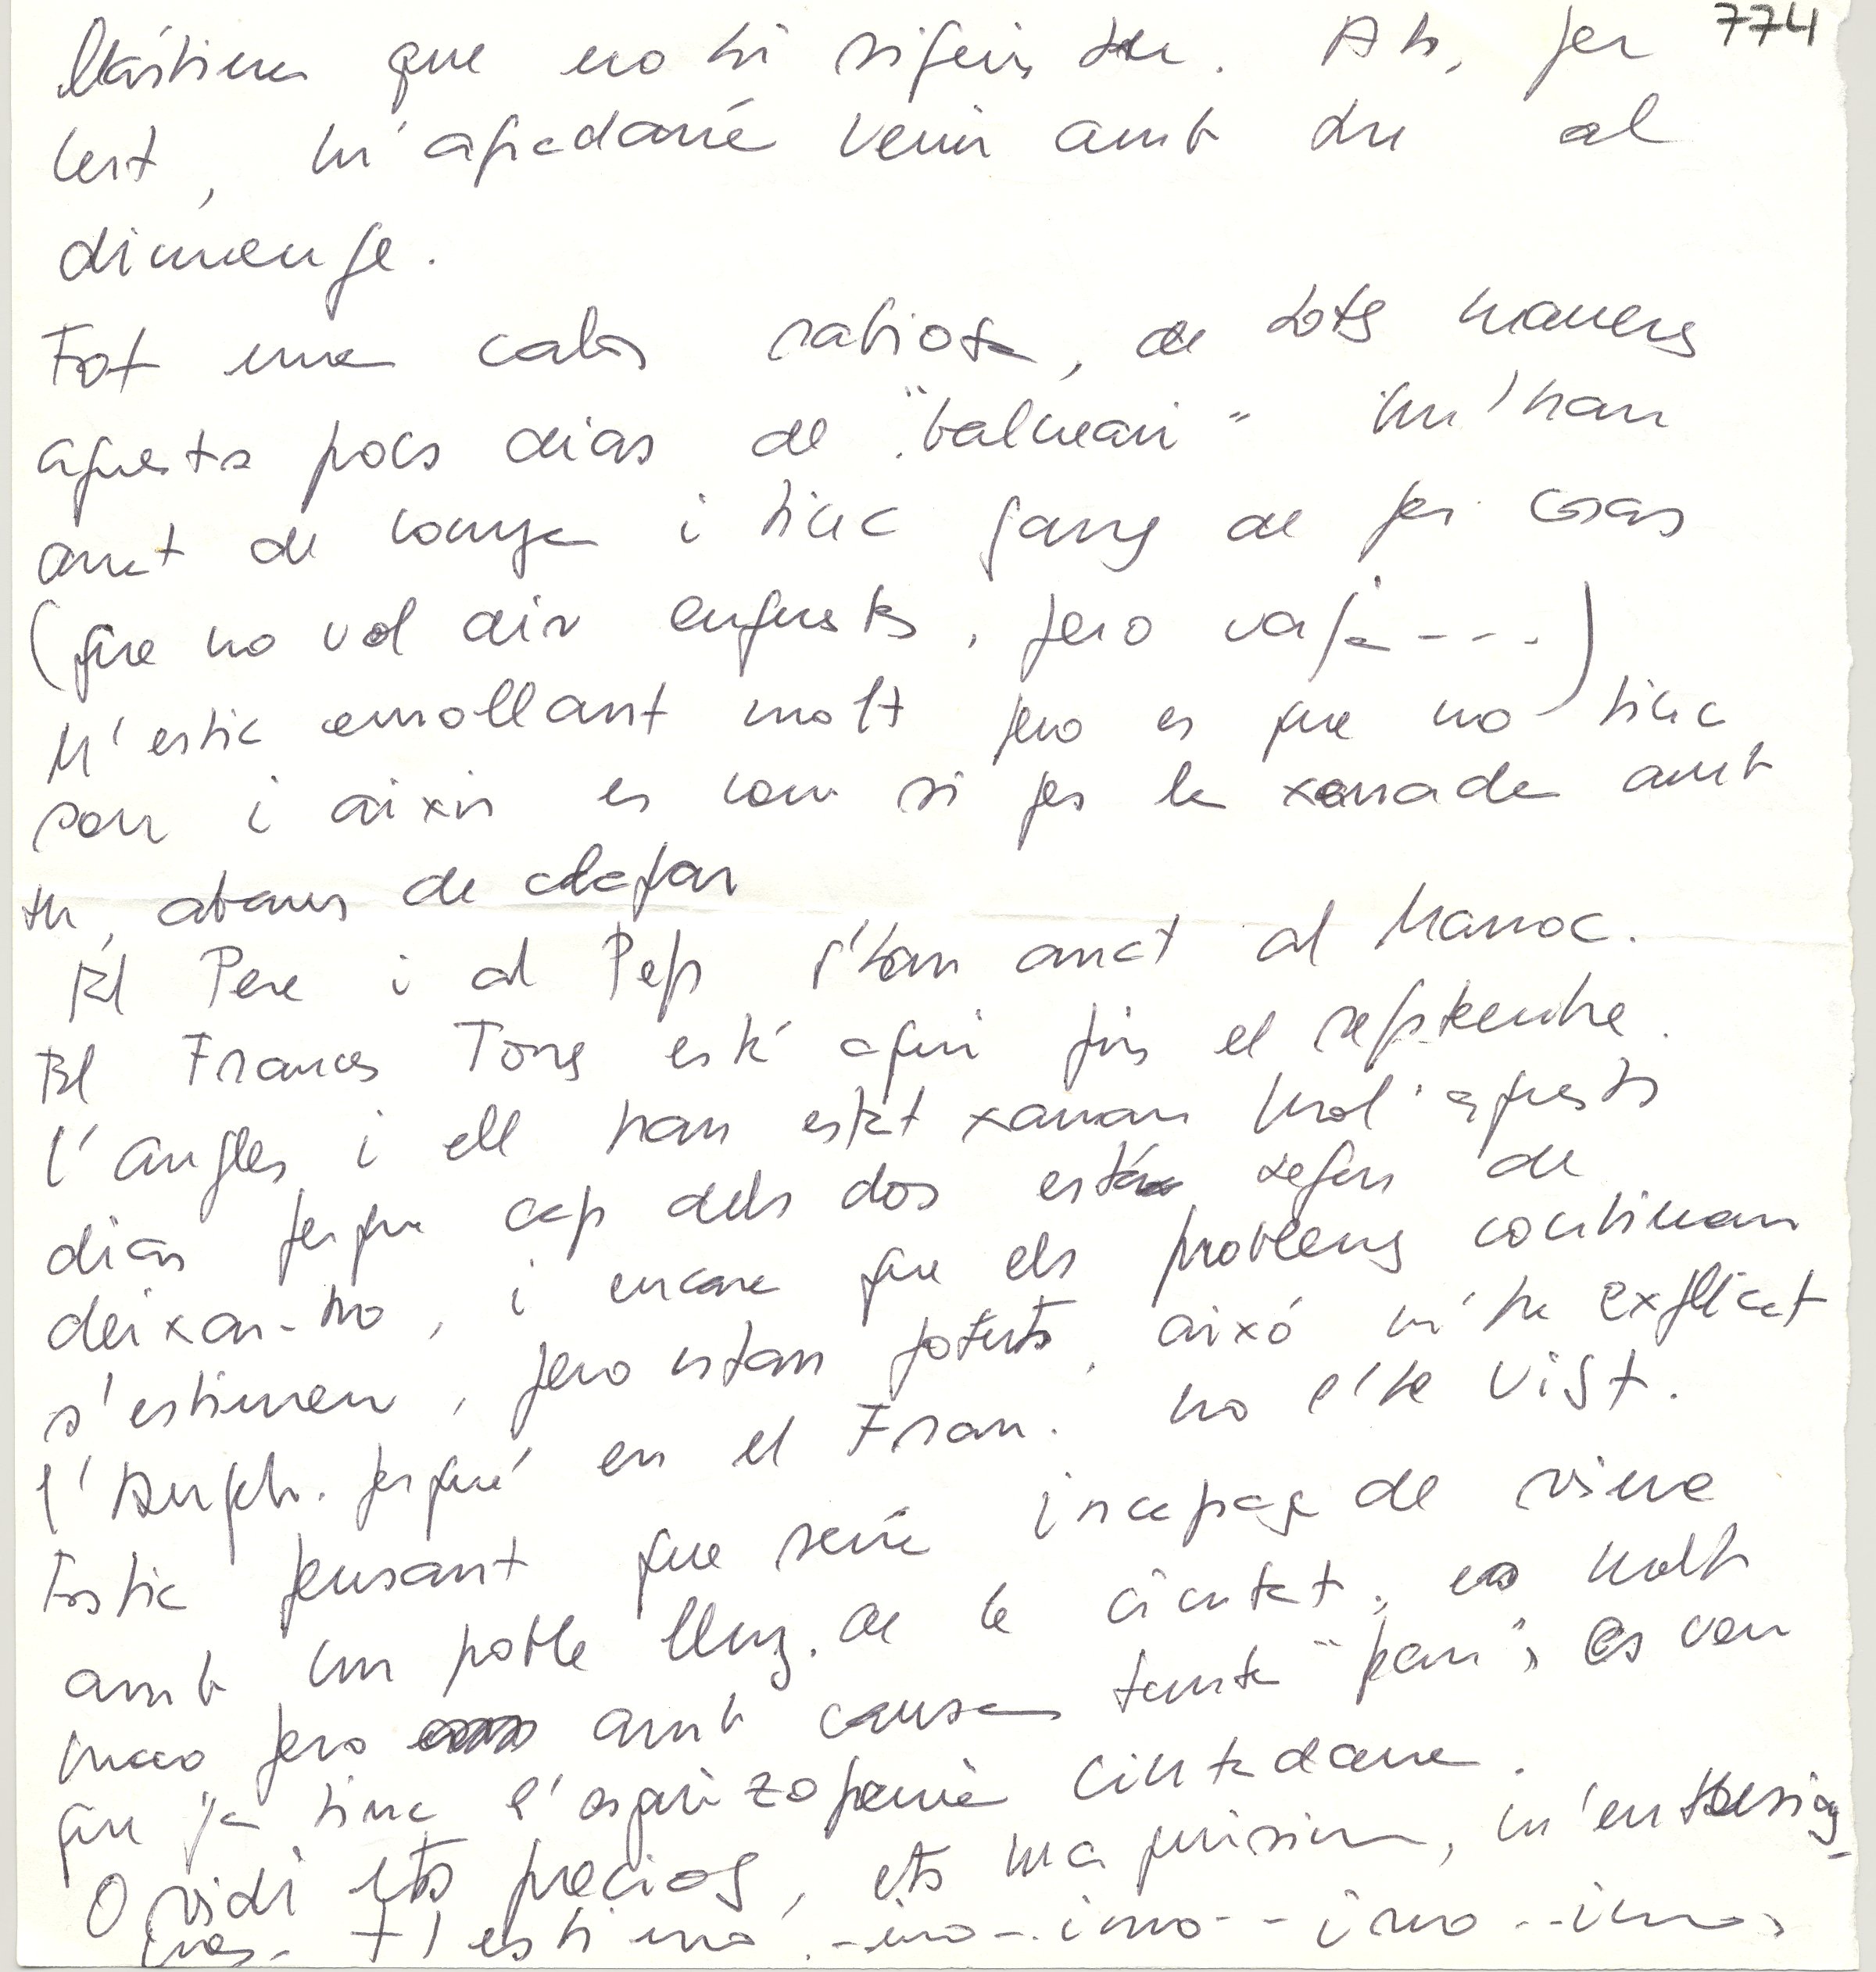 774
llástima que no hi sigues tu. Ah, per
cert, m'agradaria venir amb tu al
dimenge.
Fot una calor rabiosa, de tots maneras
aquets pocs dias de "balneari" m'han
anat de conya i tinc ganas de fer cosas
(que no vol dir enguests, pero vaja - - - .)
M'estic enrollant molt pero es que no tinc
son i aixis es com si fes la xarrada amb
tu, abans de clapar
El Pere i al Pep s'han anat al Marroc.
El Francesc Torres está aqui fins el septembre.
l'Angles i ell han estat xarran mol aquests
dias perque cap dels dos está segur de
deixar-ho, i encara que els problems continuan
s'estimen, pero estan fotuts, aixó m'ha explicat
l'Angels. perqué en el Fran. no l'he vist.
Estic pensant que seria incapaç de viure
amb un poble lluny. de la ciutat, es molt
maco pero amb causa tanta "pau", es veu
que ja tinc l'esquizofrenia ciutadana.
Ovidi ets precios, ets maquisim, m'entusias-
mas - t'estimo . - imo - imo - - imo - - imo